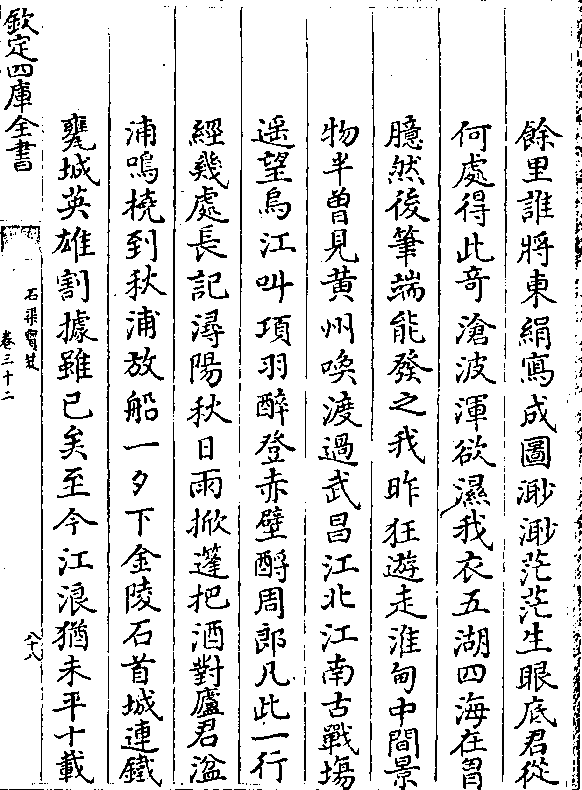 餘里誰將東絹寫成圖渺渺茫茫生眼底君從
何處得此奇滄波渾欲濕我衣五湖四海在胷
臆然後筆端能發之我昨狂遊走淮甸中間景
物半曽見黄州喚渡過武昌江北江南古戰塲
遥望烏江叫項羽醉登赤壁酹周郎凡此一行
經幾處長記潯陽秋日雨掀蓬把酒對廬君湓
浦鳴橈到秋浦放船一夕下金陵石首城連鐵
甕城英雄割據雖已矣至今江浪猶未平十載
欽定四庫全書
石渠寶笈
卷三十二
六十八